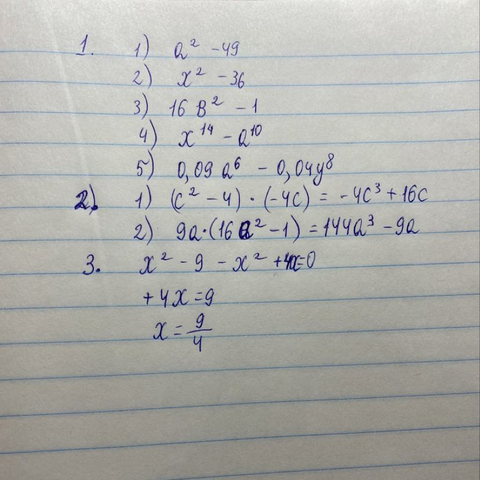 1. 1) a² - 49
2) x² - 36
3) 16 в² - 1
4) x¹⁴ - a¹⁰
5) 0,09 a⁶ - 0,04y⁸
2). 1) (c² - 4) · (-4c) = -4c³ + 16c
2) 9a·(16a² - 1) = 144a³ - 9a
3. x² - 9 - x² + 4x=0
+ 4x = 9
x = 9/4